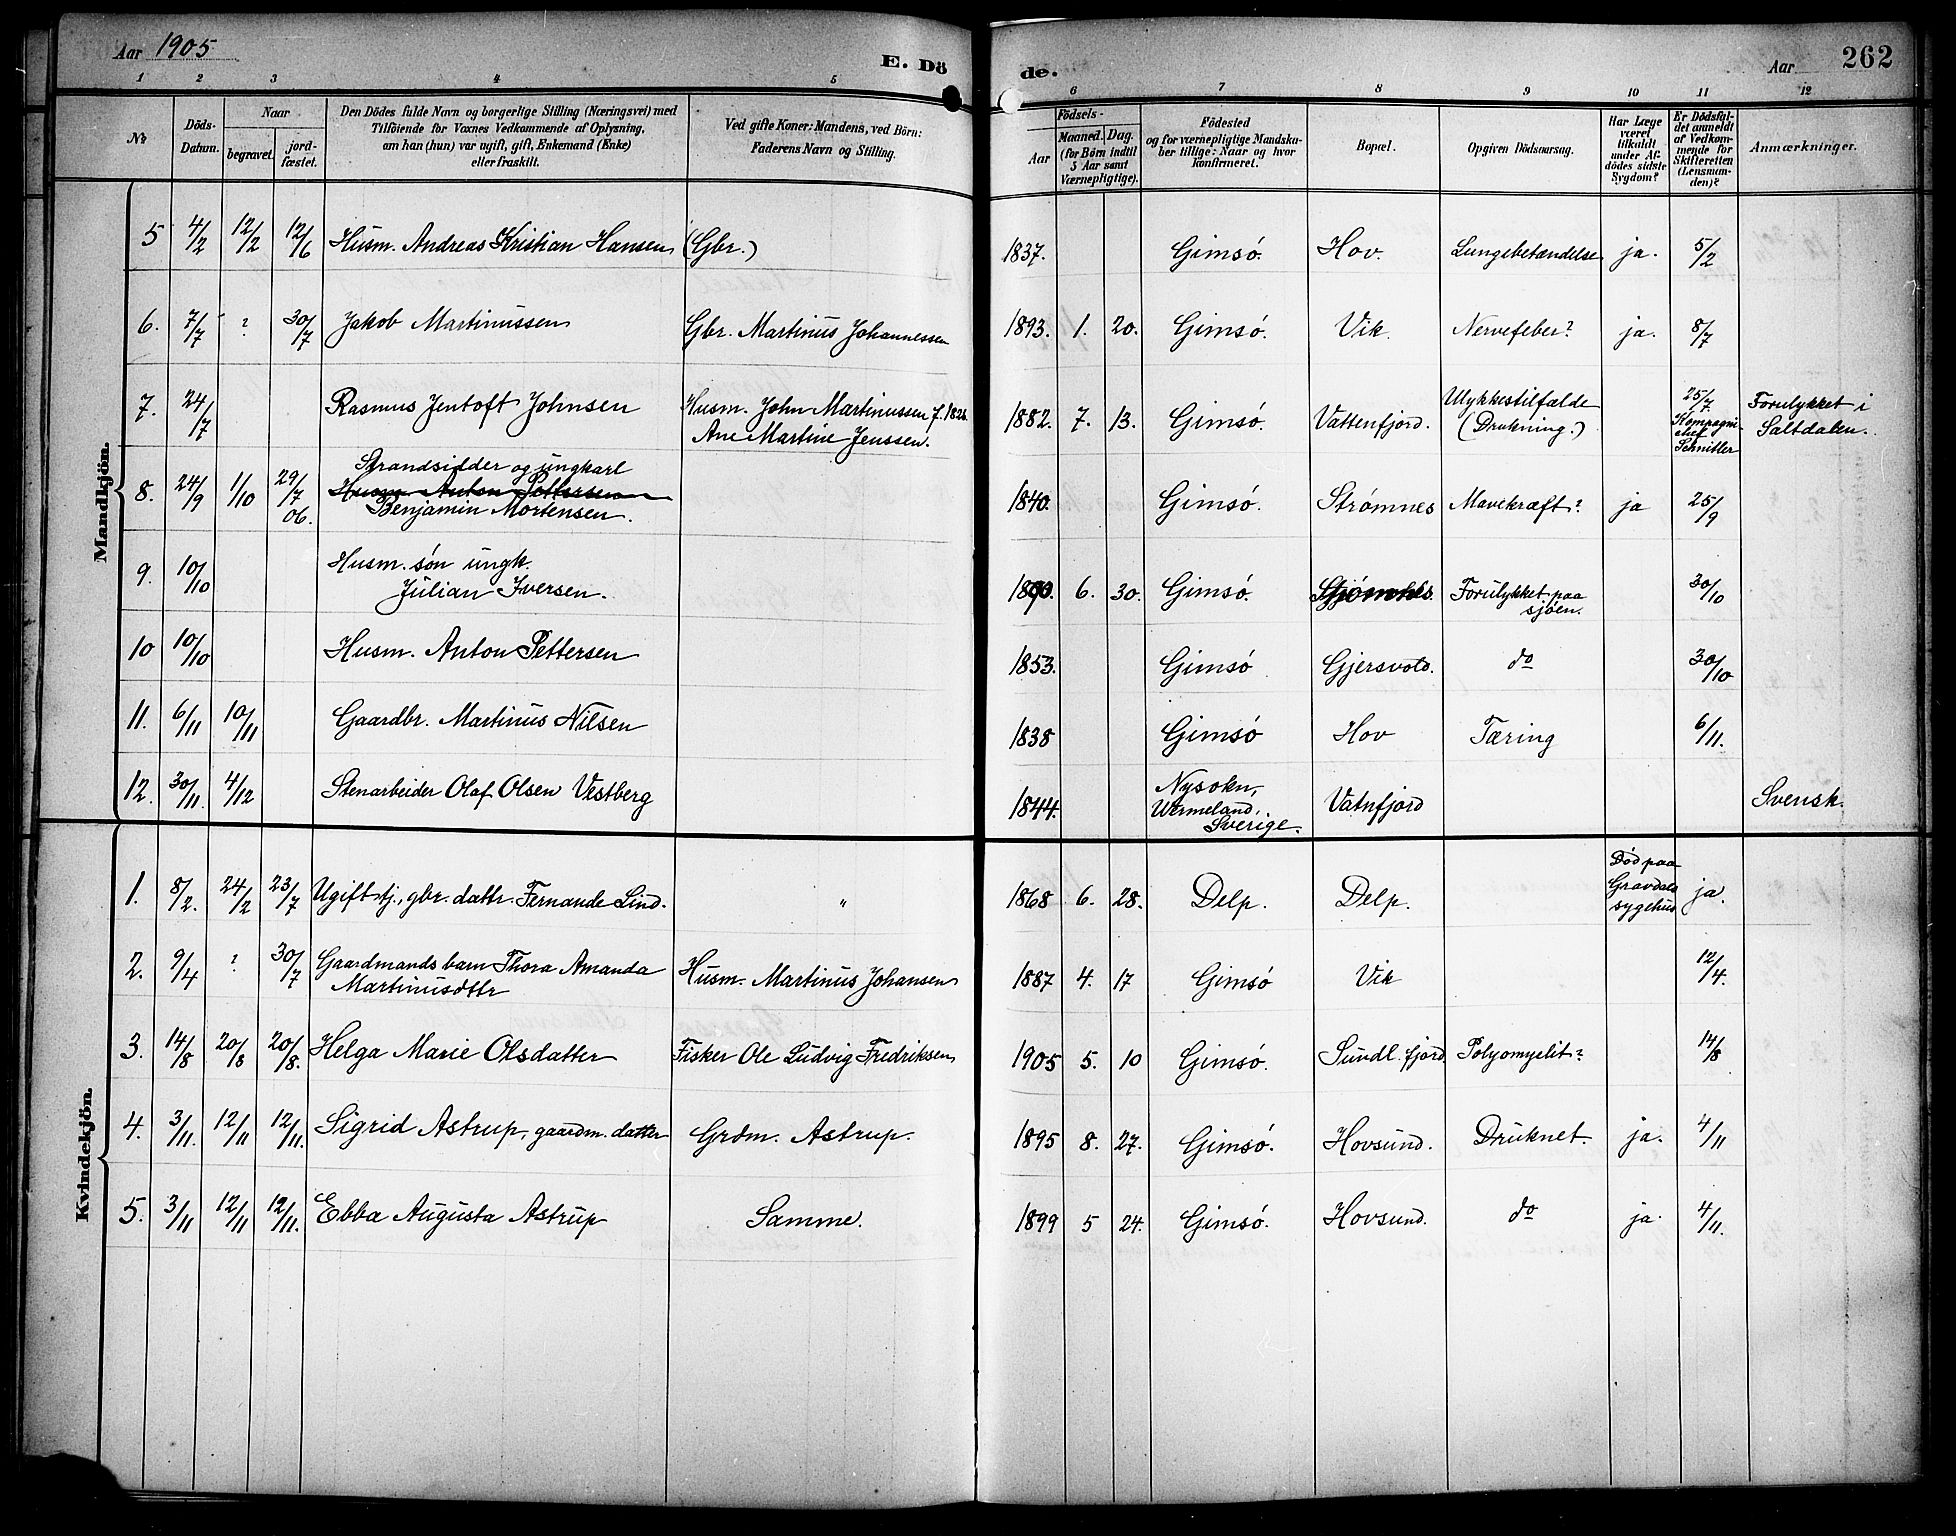 Aar 1905
E. Dö
de.
Aar
262
1 2 3 4 5 6 7 8 9 10 11 12
№
Döds-
Datum.
Naar
begravet.
jord-
fæstet.
Den Dödes fulde Navn og borgerlige Stilling (Næringsvei) med
Tilföiende for Voxnes Vedkommende af Oplysning,
om han (hun) var ugift, gift, Enkemand (Enke)
eller fraskilt.
Ved gifte Koner: Mandens, ved Börn:
Faderens Navn og Stilling.
Födsels-
Aar
Maaned. Dag.
(for Börn indtil
5 Aar samt
Værnepligtige).
Födested
og for værnepligtige Mandska-
ber tillige: Naar og hvor
konfirmeret.
Bopæl.
Opgiven Dödsaarsag.
Har Læge
været
tilkaldt
under Af-
dödes sidste
Sygdom?
Er Dödsfal-
det anmeldt
af Vedkom-
mende for
Skifteretten
(Lensman-
den)?
Anmærkninger.
Mandkjön.
5 4/2 12/2 12/6 Husm. Andreas Kristian Hansen (Gbr.) 1837. Gimsó. Hov. Lungebetændelse ja. 5/2
6. 7/7 ? 30/7 Jakob Martinussen Gbr. Martinus Johannessen 1893. 1. 20. Gimsó. Vik. Nervefeber? ja. 8/7
7. 24/7 Rasmus Jentoft Johnsen Husm. John Martinussen f. 1828
Ane Martine Jenssen. 1882. 7. 13. Gimsó. Vattenfjord. Ulykkestilfælde
(Drukning.) 25/7.
Kompagni
chef
Schnitler
Forulykket i
Saltdalen.
8. 24/9 1/10 29/7 06. Strandsidder og ungkarl
Husm. Anton Pettersen
Benjamin Mortensen. 1840. Gimsó. Strømnes Mavekræft? ja 25/9
9. 10/10 Husm. són ungk.
Julian Iversen. 1890. 6. 30. Gimsó. Strømnes. Forulykket paa
sjøen. 30/10
10 10/10 Husm. Anton Pettersen 1853. Gimsó Gjersvold. do 30/10
11. 6/11 10/11 Gaardbr. Martinus Nilsen 1838 Gimsó Hov Tæring 6/11.
12. 30/11. 4/12 Stenarbeider Olaf Olsen Vestberg 1844. Nysokn,
Wermeland,
Sverige. Vatnfjord Svensk.
Kvindekjön.
1. 8/2. 24/2 23/7 Ugift tj., gbr. dattr. Fernande Lind. " 1868 6. 28. Delp. Delp. Død paa
Gravdals
sygehus ja.
2. 9/4 ? 30/7 Gaardmands barn Thora Amanda
Martinusdttr Husm. Martinus Johansen 1887 4. 17 Gimsó Vik 12/4.
3. 14/8 20/8 20/8. Helga Marie Olsdatter Fisker Ole Ludvig Fredriksen 1905 5. 10 Gimsó. Sundl. fjord Polyomyelit? 14/8
4. 3/11. 12/11 12/11. Sigrid Astrup, gaardm. datter Grdm. Astrup. 1895 8. 27. Gimsó. Hovsund. Druknet. ja. 4/11
5. 3/11 12/11 12/11. Ebba Augusta Astrup Samme. 1899 5 24. Gimsó. Hovsund. do ja. 4/11.